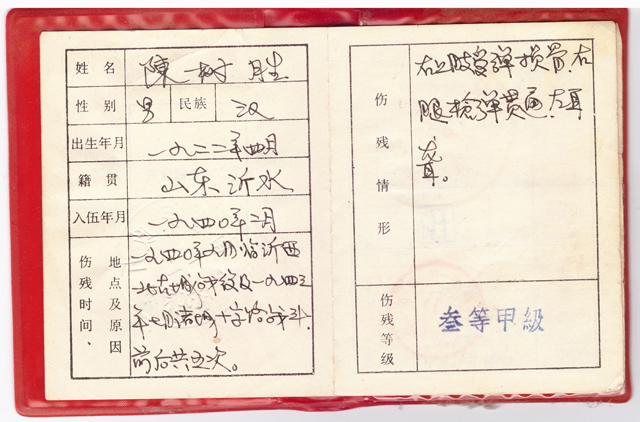 姓名 陳树胜
性别 男 民族 汉
出生年月 一九二二年四月
籍贯 山东沂水
入伍年月 一九四〇年二月
伤残时间、地点及原因
一九四〇年九月临沂西
年七月诸城十字路战斗.
前后共五次。
伤残情形
右上肢受弹损骨.右
眼枪弹贯通.左耳
聋。
伤残等级 叁等甲級